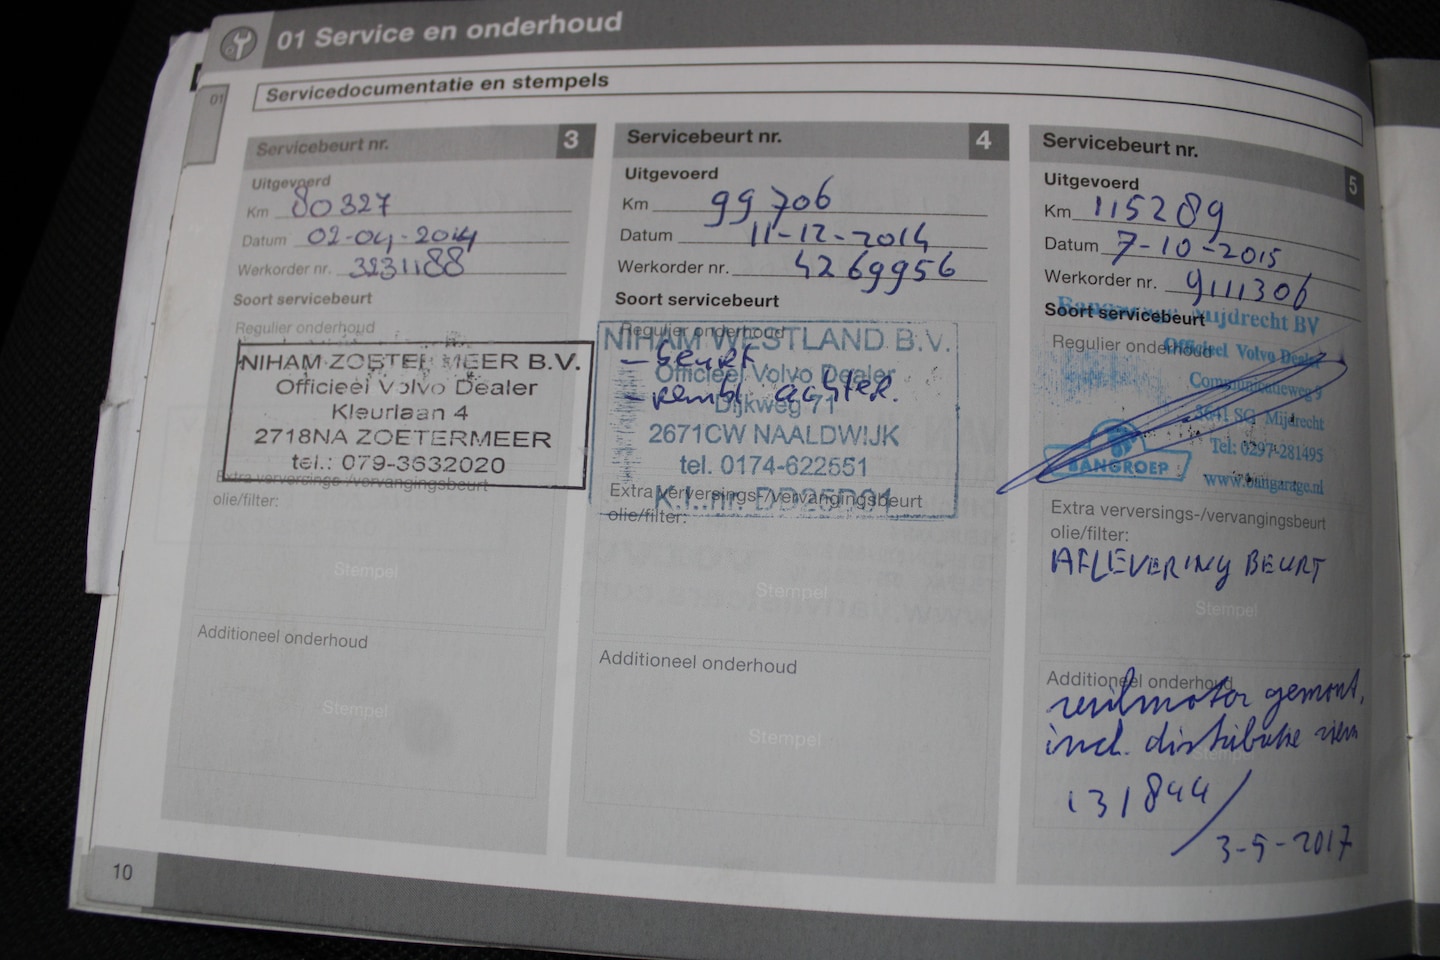 01 Service en onderhoud
01
Servicedocumentatie en stempels
Servicebeurt nr. 3
Uitgevoerd
Km 80327
Datum 02-04-2014
Werkorder nr. 3231188
Soort servicebeurt
Regulier onderhoud
NIHAM ZOETERMEER B.V.
Officieel Volvo Dealer
Kleurlaan 4
2718NA ZOETERMEER
tel.: 079-3632020
Extra verversings-/vervangingsbeurt
olie/filter:
Stempel
Additioneel onderhoud
Stempel
Servicebeurt nr. 4
Uitgevoerd
Km 99706
Datum 11-12-2014
Werkorder nr. 4269956
Soort servicebeurt
Regulier onderhoud
NIHAM WESTLAND B.V.
- beurt
Officieel Volvo Dealer
- rembl achter.
Dijkweg 71
2671CW NAALDWIJK
tel. 0174-622551
Extra verversings-/vervangingsbeurt
K.I..nr. DD25D01
olie/filter:
Stempel
Additioneel onderhoud
Stempel
Servicebeurt nr. 5
Uitgevoerd
Km 115289
Datum 7-10-2015
Werkorder nr. 9111306
Soort servicebeurt
Mijdrecht BV
Regulier onderhoud
Officieel Volvo Dealer
Communicatieweg 9
3641 SG Mijdrecht
Tel: 0297-281495
BANGROEP
www.bangarage.nl
Extra verversings-/vervangingsbeurt
olie/filter:
AFLEVERING BEURT
Stempel
Additioneel onderhoud
ruilmotor gemont.
incl. distributie riem
Stempel
131844
3-5-2017
10